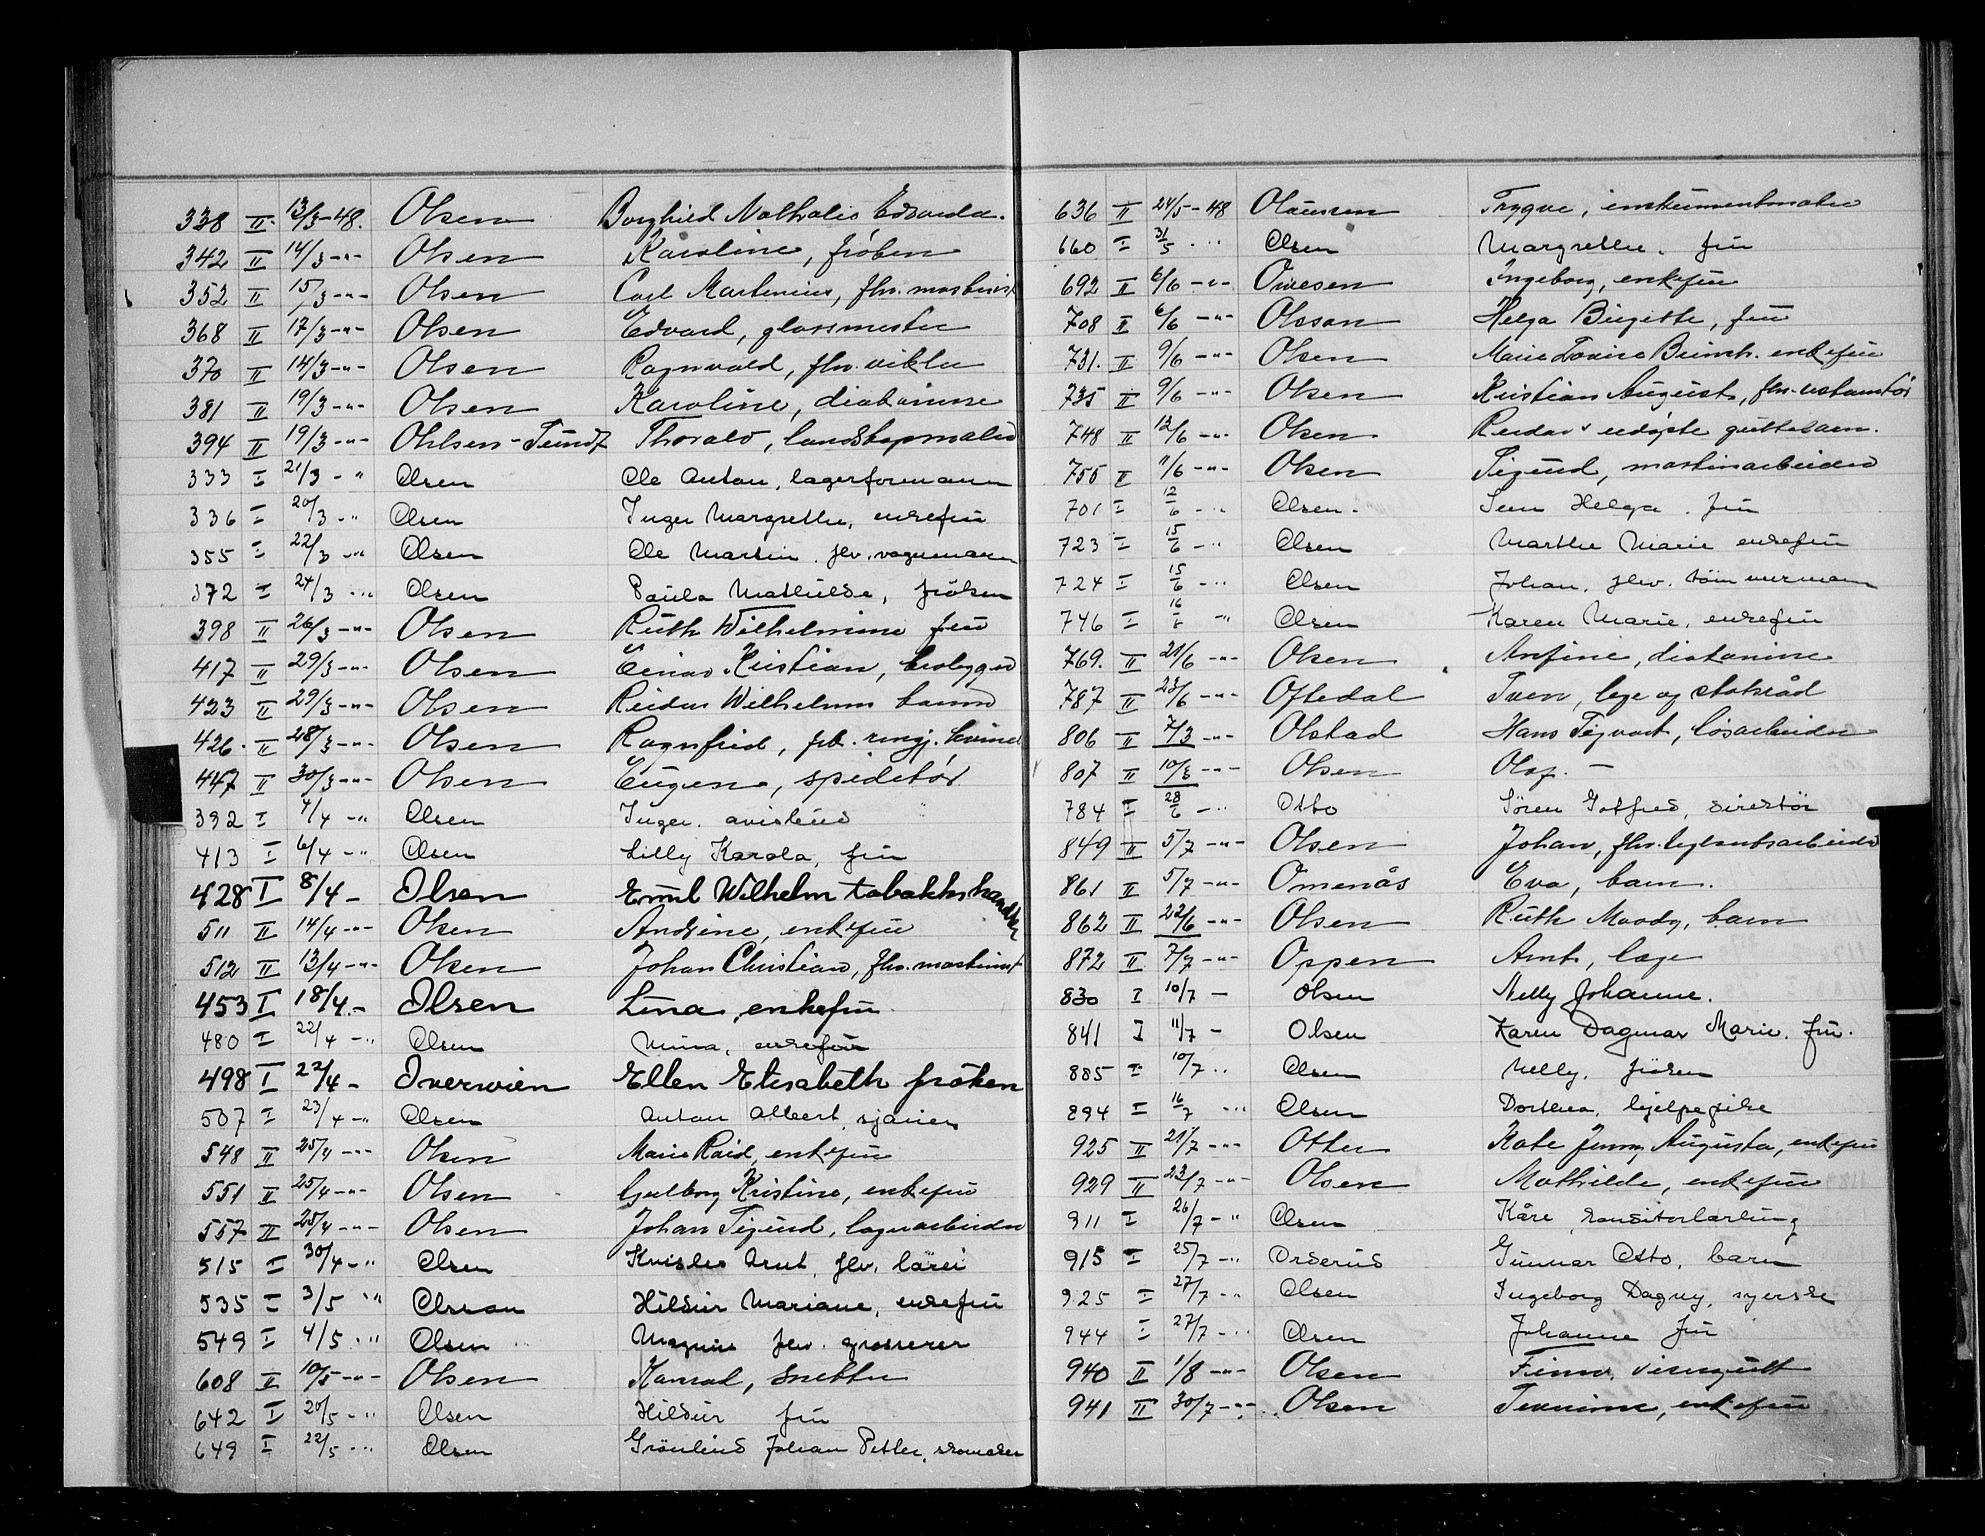 338 II 13/3-48. Olsen Borghild Nathalie Edvarda.
342 II 14/3 -"- Olsen Karoline, frøken
352 II 15/3 -"- Olsen Carl Martinius, fhv. maskinist
368 II 17/3 -"- Olsen Edvard, glassmester
370 II 14/3 -"- Olsen Ragnvald, fhv. vikler
381 II 19/3 -"- Olsen Karoline, diakonisse
394 II 19/3 -"- Ohlsen- Thorald, landskapmaler
333 I 21/3 - " Olsen Ole Anton, lagerformann
336 I 20/3 - " Olsen Inger Margrethe, enkefru
355 I 22/3 - " Olsen Ole Martin. fhv. vognmann
372 I 24/3 - " Olsen Paula Mathilde, frøken
398 II 26/3 -"- Olsen Ruth Wilhelmine fru
417 II 29/3 -"- Olsen Einar Kristian,
423 II 29/3 -"- Olsen Reidar Wilhelm
426. II 28/3 -"- Olsen Ragnfrid,
447 II 30/3 -"- Olsen Eugen, speditør
392 I 4/4 - " Olsen Inger. avisbud
413 I 6/4 - " Olsen Lilly Karola, fru
428 I 8/4 - Olsen Emil Wilhelm tobakkshandler
511 II 14/4 -"- Olsen Andrine, enkefru
512 II 13/4 -"- Olsen Johan Christian, fhv. maskinist
453 I 18/4 - Olsen Lina, enkefru
480 I 22/4 - " Olsen Mina, enkefru
498 I 22/4 - Overvien Ellen Elisabeth frøken
507 I 23/4 - " Olsen Anton Albert, sjauer
548 II 25/4 -"- Olsen Marie enkefru
551 II 25/4 -"- Olsen Gulborg Kristine, enkefru
557 II 25/4 -"- Olsen Johan Sigurd, lagerarbeider
515 I 30/4 - " Olsen Arnt, fhv. lærer
535 I 3/5 " Olssen Hildur Mariane, enkefru
549 I 4/5 - " Olsen Magnus fhv. grosserer
608 II 10/5 -"- Olsen Konrad, snekker
642 I 20/5 - " Olsen Hildur fru
649 I 22/5 - " Olsen Grönlund Johan Petter, skomaker
636 II 24/5 - 48 Olaussen Trygve, instrumentmaker
660 I 31/5 - " Olsen Margrethe. fru
692 II 6/6 -"- Ovesen Ingeborg, enkefru
708 II 6/6 -"- Olsson Helga Birgitte, fru
731. II 9/6 -"- Olsen Marie Lovise enkefru
735 II 9/6 -"- Olsen Kristian August, fhv. restauratør
748 II 12/6 -"- Olsen. Reidar's udøpte guttebarn.
755 II 11/6 -"- Olsen Sigurd, maskinarbeider
701 I 12/6 - " Olsen. Helga. fru
723 I 15/6 - " Olsen Marthe Marie enkefru
724 I 15/6 - " Olsen Johan, fhv. tømmermann
746 I 16/6 - " Olsen Karen Marie, enkefru
769. II 21/6 -"- Olsen Anfine, diakonisse
787 II 23/6 -"- Oftedal Sven, lege og statsråd
806 II 7/3 -"- Olstad Hans Sigvart, løsarbeider
807 II 10/3 -"- Olsen Olof. -
784 I 28/6 - " Otto Sören Gotfred, direktör
849 II 5/7 -"- Olsen Johan, fhv. bylantsarbeider
861 II 5/7 -"- Omenås Eva, barn.
862 II 22/6 -"- Olsen Ruth Moody, barn
872 II 7/7 -"- Ospen Arnt, lege
830 I 10/7 - Olsen Nelly Johanne.
841 I 11/7 - Olsen Karen Dagmar Marie. fru.
885 I 10/7 " Olsen Nelly. frøken
894 I 16/7 " Olsen Dorthea. hjelpepike
925 II 21/7 -"- Otter Kate Jenny Augusta, enkefru
929 II 23/7 -"- Olsen Mathilde, enkefru
911 I 26/7 - " Olsen Kåre, konditorlærling
915 I 25/7 - " Orderud Gunnar Otto, barn
925 I 27/7 - " Olsen Ingeborg Dagny, syerske
944 I 27/7 - " Olsen Johanne fru
940 II 1/8 -"- Olsen Finn, visergutt
941 II 30/7 -"- Olsen enkefru